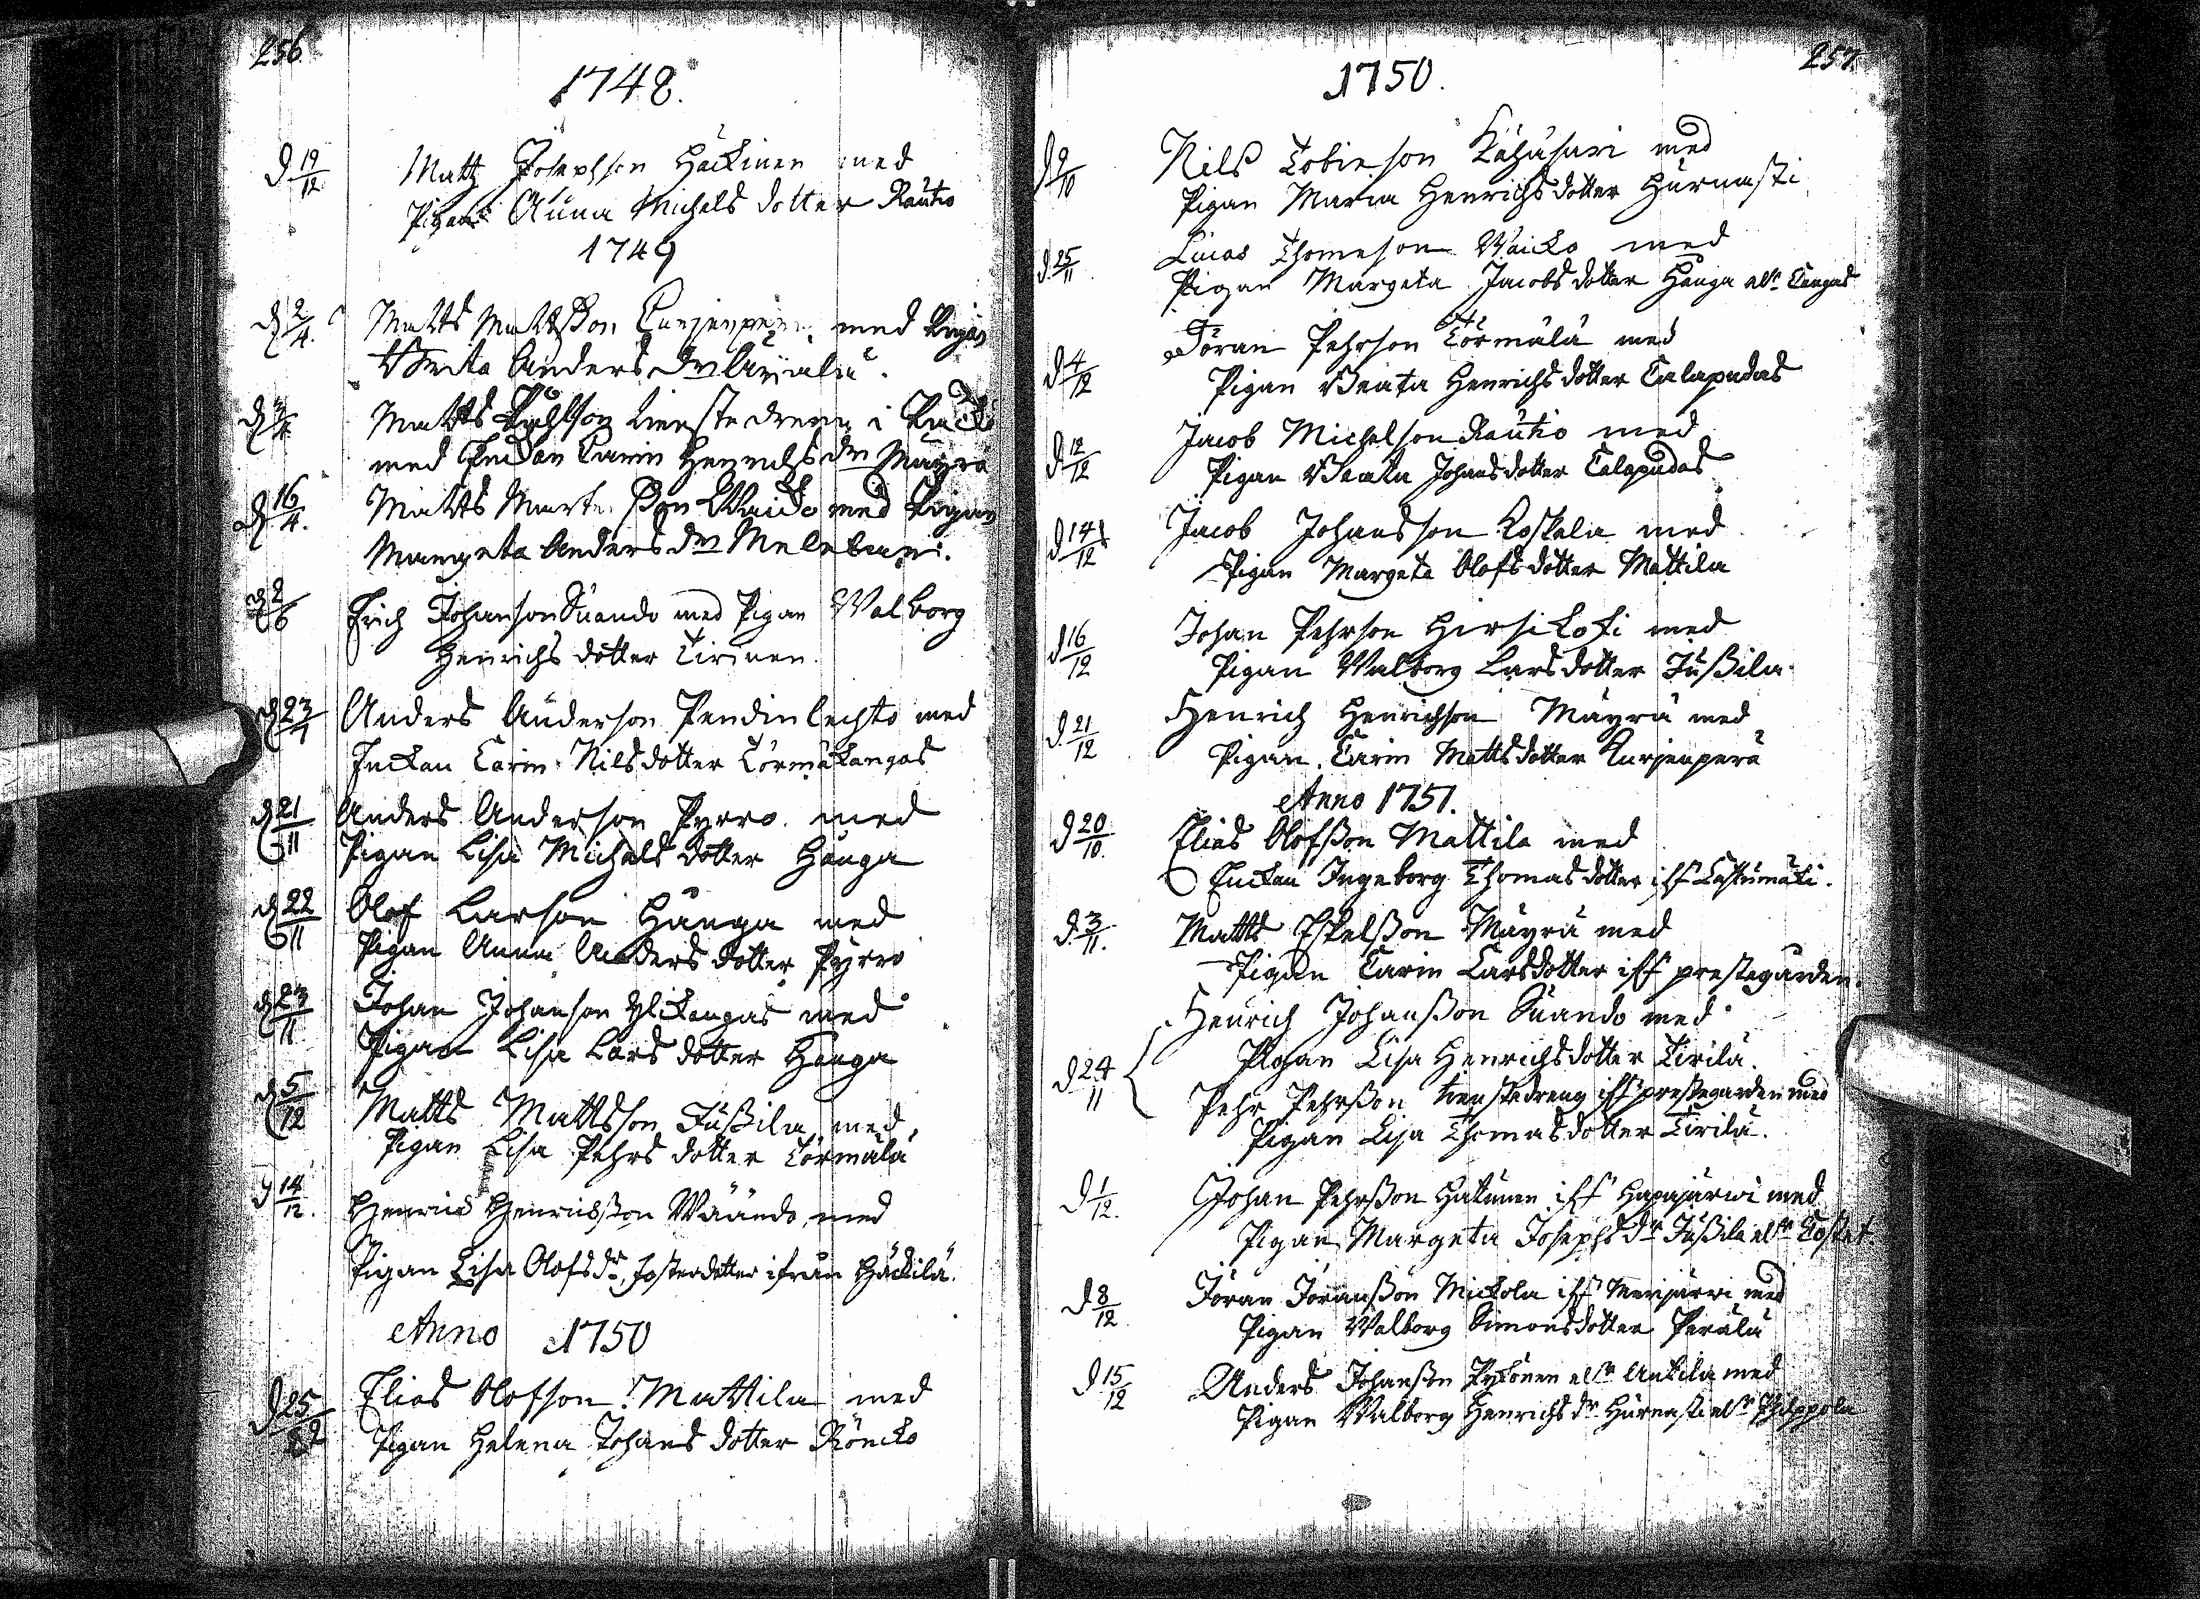 256.
1748.
d. 19/12 Matz Josephson Häckinen med
Pigan Anna Michels dotter Rautio
1749
d 2/4. Matts Mattsson Kurjenperä med Pigan
Brita Anders dr
d Matts tienstedreng i
med Enckan Carin Henrichs dr Mäyrä
d 16/4. Matts Mårtensson Waicko med Pigan
Margeta Anders dr
d 2/6 Erich Johanson Suando med Pigan Walborg
Henrichs dotter Tirinen
d 23/7 Anders Anderson Pendinlechto med
Enckan Carin Nilsdotter Törmäkangas
d 21/11 Anders Anderson Pyrro med
Pigan Lisa Michels dotter Hånga
d 22/11 Olof Larson Hånga med
Pigan Anna Anders dotter Pyrro
d 23/11 Johan Johanson Ylikangas med
Pigan Lisa Lars dotter Hånga
d 5/12 Matts Mattsson Jußila med
Pigan Lisa Pehrs dotter Törmälä
d 14/12. Henric Henricsson Wäändo med
Pigan Lisa Olofs dr, fosterdotter ifrån Häckilä.
Anno 1750
d 25 Elias Olofson Mattila med
Pigan Helena Johans dotter Röncko
257.
1750.
d 9/10 Nils Tobieson Kähusari med
Pigan Maria Henrichsdotter Hurnasti
d. 25/11 Lucas Thomeson Waicko med
Pigan Margeta Jacobs dotter Hånga allr Kangas
d 4/12 Jöran Pehrson Törmälä med
Pigan Beata Henrichs dotter Talapudas
d. 12/12 Jacob Michelson Rautio med
Pigan Beata Johans dotter Talapudas
d 14/12 Jacob Johansson Koskela med
Pigan Margeta Olofs dotter Mattila
d 16/12 Johan Pehrson Hirsikoski med
Pigan Walborg Larsdotter Jußila
d. 21/12 Henrich Henrichson Mäyrä med
Pigan Carin Mattsdotter Kurjenperä
Anno 1751.
d 20/10. Elias Olofßon Mattila med
Enckan Ingeborg Thomasdotter iff Lastumäki.
d. 3/11. Matts Eskelßon Mäyrä med
Pigan Carin Larsdotter iff prestegården.
Henrich Johanßon Suando med
d 24/11 Pigan Lisa Henrichsdotter Tirilä.
Pehr Pehrßon tienstedreng iff prestegården med
Pigan Lisa Thomasdotter Tirilä.
d 1/12. Johan Pehrßon Hutunen iff Hapajärwi med
Pigan Margeta Josephs dr Jußila ellr Toftet
d 8/12 Jöran Joranßon Mickola iff Merijärwi med
Pigan Walborg Simonsdotter Perälä
d 15/12 Anders Johanßon Pyköinen ellr Ankila med
Pigan Walborg Henrichs dr Hurnasti ellr Philppola